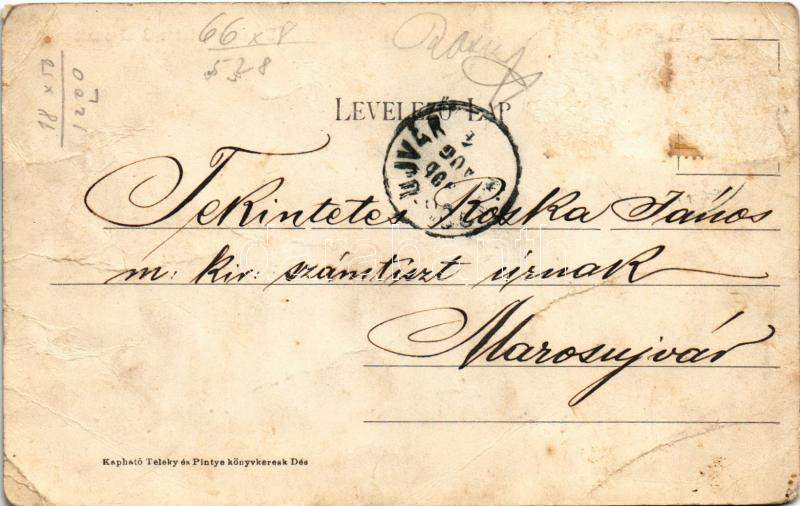 66 x 8
528
18 x 15
LEVELEZŐ LAP
UJVÁR
Tekintetes Roska János
m: kir: számtiszt úrnak
Marosujvár
Kapható Teleky és Pintye könyvkeresk Dés
darabanth